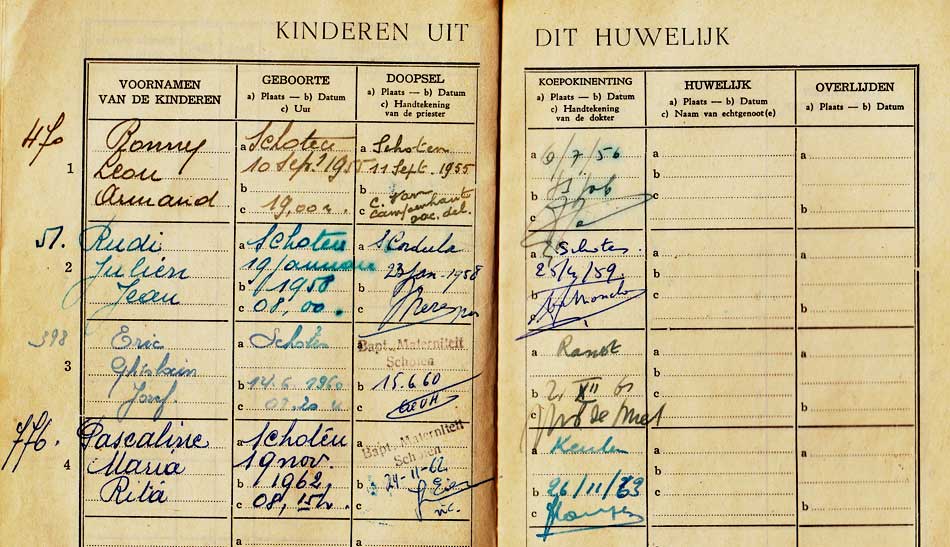 KINDEREN UIT DIT HUWELIJK
VOORNAMEN VAN DE KINDEREN
GEBOORTE
a) Plaats — b) Datum
c) Uur
DOOPSEL
a) Plaats — b) Datum
c) Handtekening
van de priester
KOEPOKINENTING
a) Plaats — b) Datum
c) Handtekening
van de dokter
HUWELIJK
a) Plaats — b) Datum
c) Naam van echtgenoot(e)
OVERLIJDEN
a) Plaats — b) Datum
470
1
Ronny
Léon
Armand
a Schoten
10 Sept 1955
b
c 19,00 u.
a Schoten
11 Sept. 1955
b
c C. Van Campenhout
a 6/7/56
b
c
a
b
c
a
b
51.
2
Rudi
Julien
Jean
a Schoten
19 januari
b 1958
c 08,00.
a S Cordula
23 Jan - 1958
b
c
a Schoten
25/4/59
b
c
a
b
c
a
b
398
3
Eric
Ghislain
Jozef
a Schoten
b 14.6.1960
c
a Bapt. Materniteit
Schoten
b 15.6.60
c
a Ranst
b 2. XII 61
c
a
b
c
a
b
776.
4
Pascaline
Maria
Rita
a Schoten
19 nov.
b 1962
c 08,15 u.
a Bapt. Materniteit
Schoten
b 24-11-62
c
a Keulen
b 26/11/63
c
a
b
c
a
b